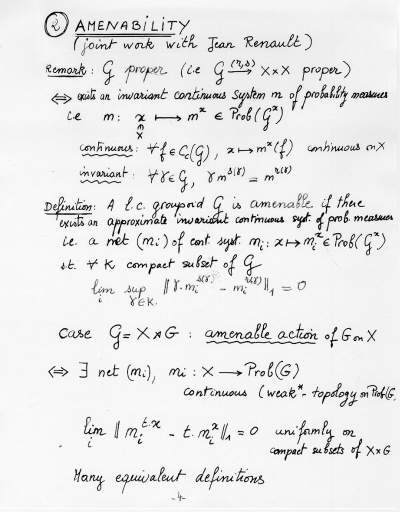 ② AMENABILITY
(joint work with Jean Renault)
Remark: G proper (ie G —(r,s)→ X×X proper)
⇔ exists an invariant continuous system m of probability measures
ie m: x ↦ m^x ∈ Prob(G^x)
∈
X
continuous: ∀f ∈ C_c(G), x ↦ m^x(f) continuous on X
invariant: ∀γ ∈ G, γ m^{s(γ)} = m^{r(γ)}
Definition: A l.c. groupoid G is amenable if there
exists an approximate invariant continuous syst. of prob. measures
ie. a net (m_i) of cont. syst. m_i: x ↦ m_i^x ∈ Prob(G^x)
st. ∀ K compact subset of G
lim_i sup_{γ∈K} ‖γ.m_i^{s(γ)} - m_i^{r(γ)}‖_1 = 0
Case G = X⋊G : amenable action of G on X
⇔ ∃ net (m_i), m_i : X → Prob(G)
continuous (weak*-topology on Prob(G),
lim_i ‖ m_i^{t.x} - t.m_i^x ‖_1 = 0 uniformly on
compact subsets of X×G
Many equivalent definitions
-4-